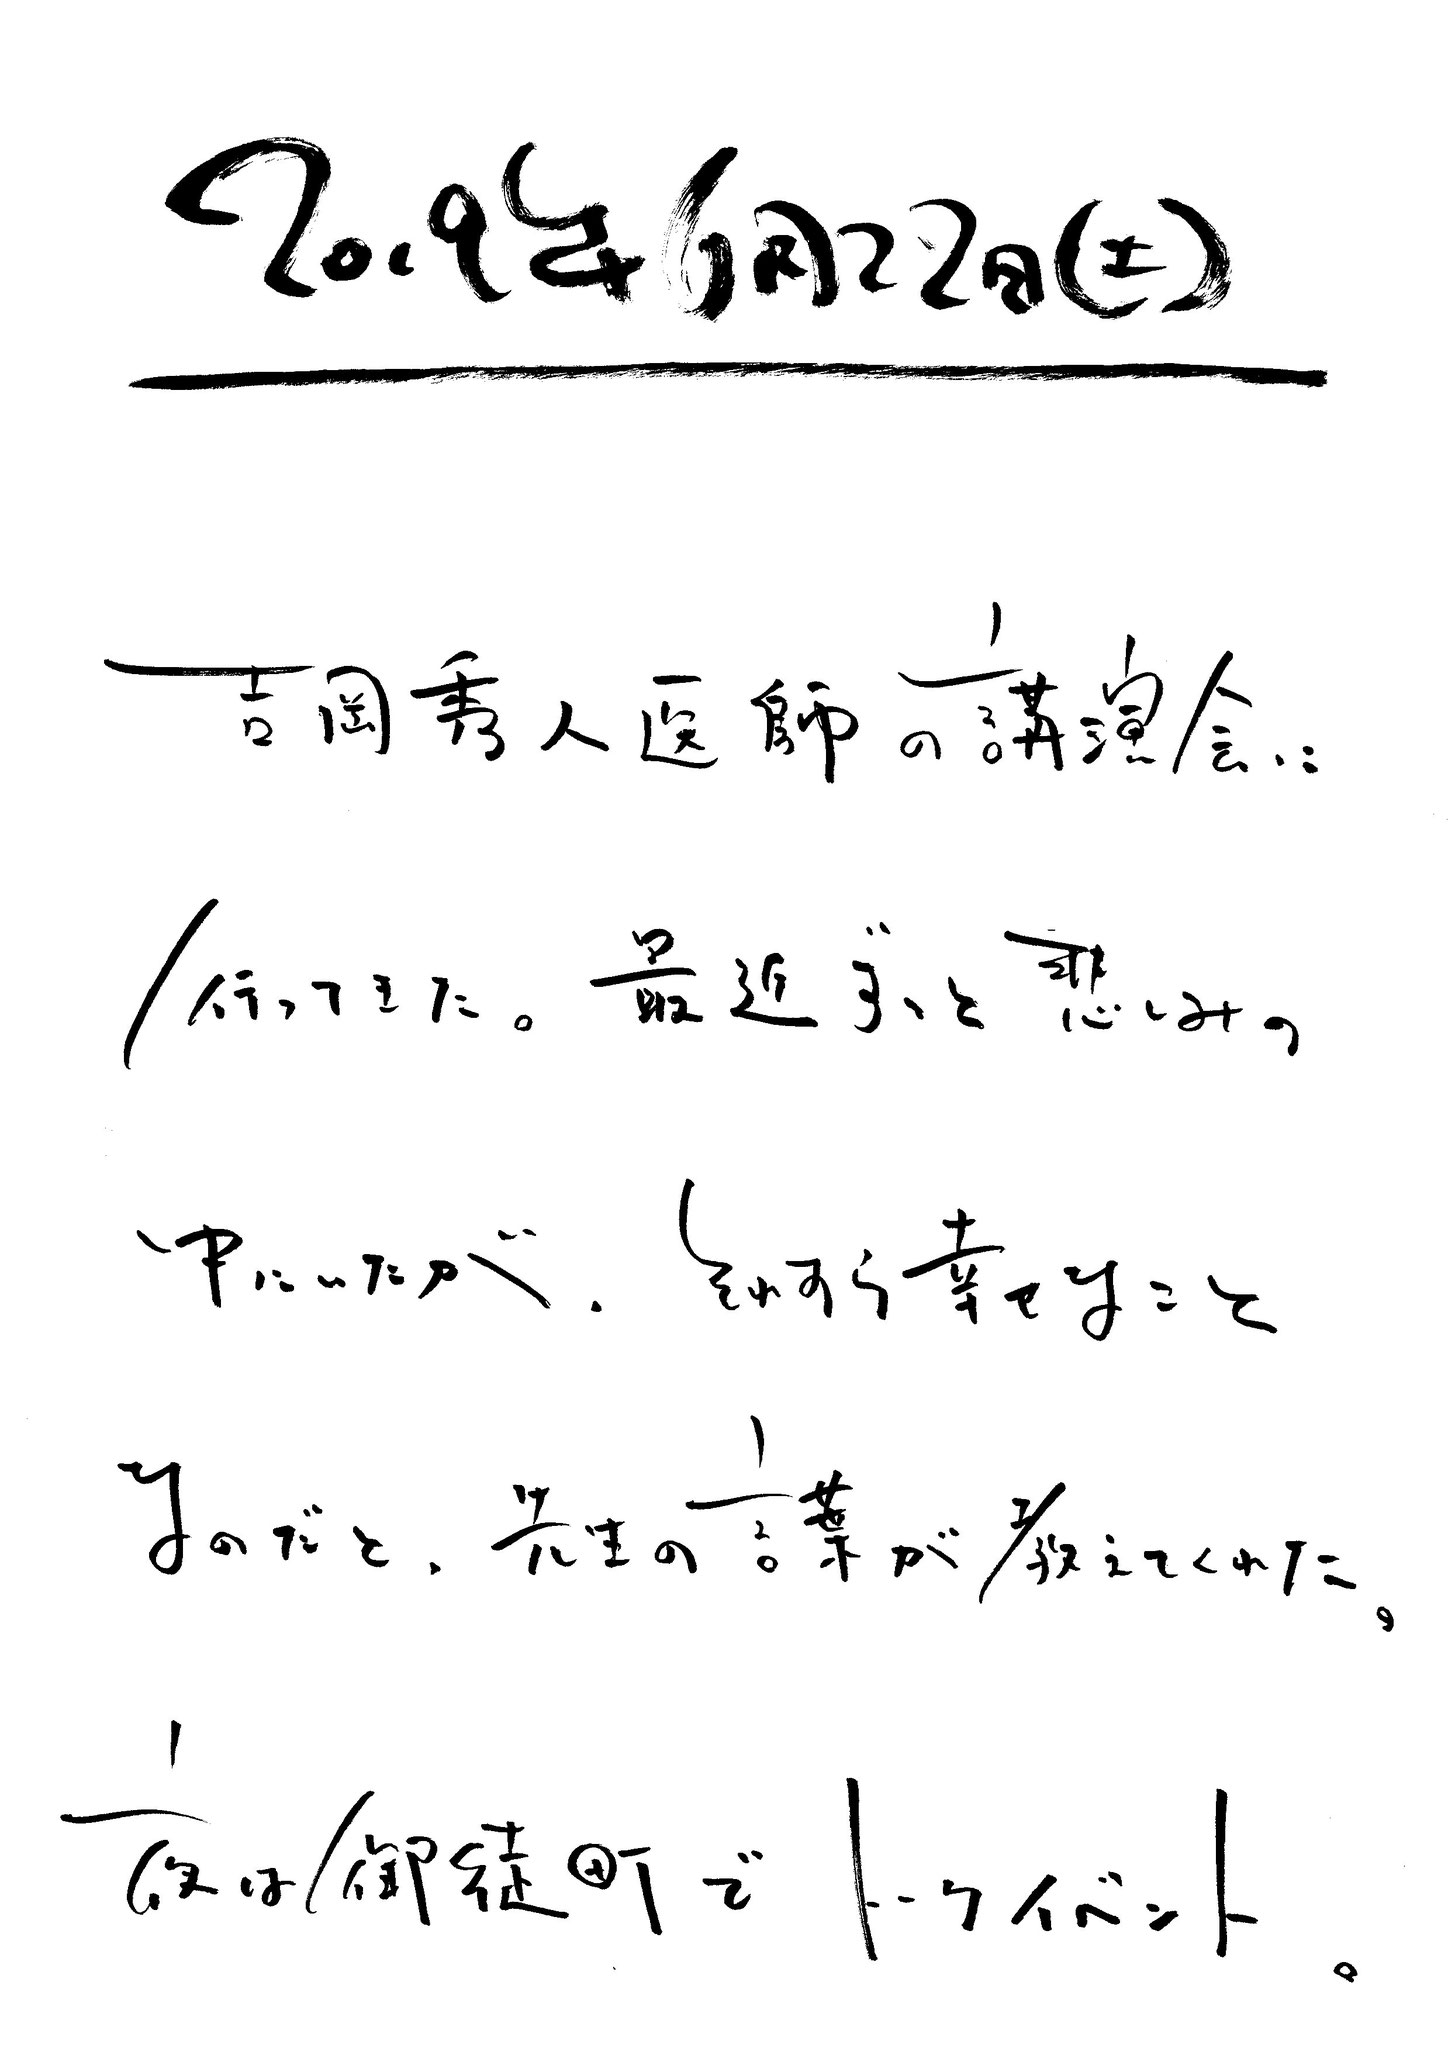 2019年6月22日(土)
吉岡秀人医師の講演会に
行ってきた。最近ずっと悲しみの
中にいたが、それすら幸せなこと
なのだと、先生の言葉が教えてくれた。
夜は御徒町でトークイベント。